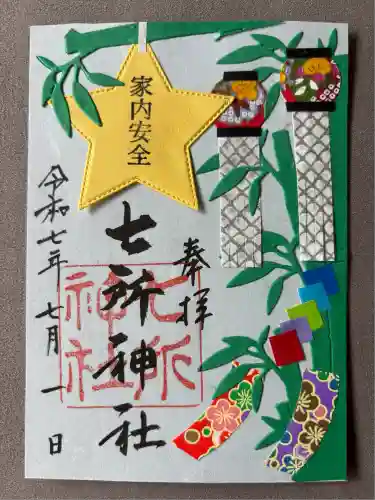 家内安全
奉拝
七所神社
七所
神社
令和七年 七月 一日